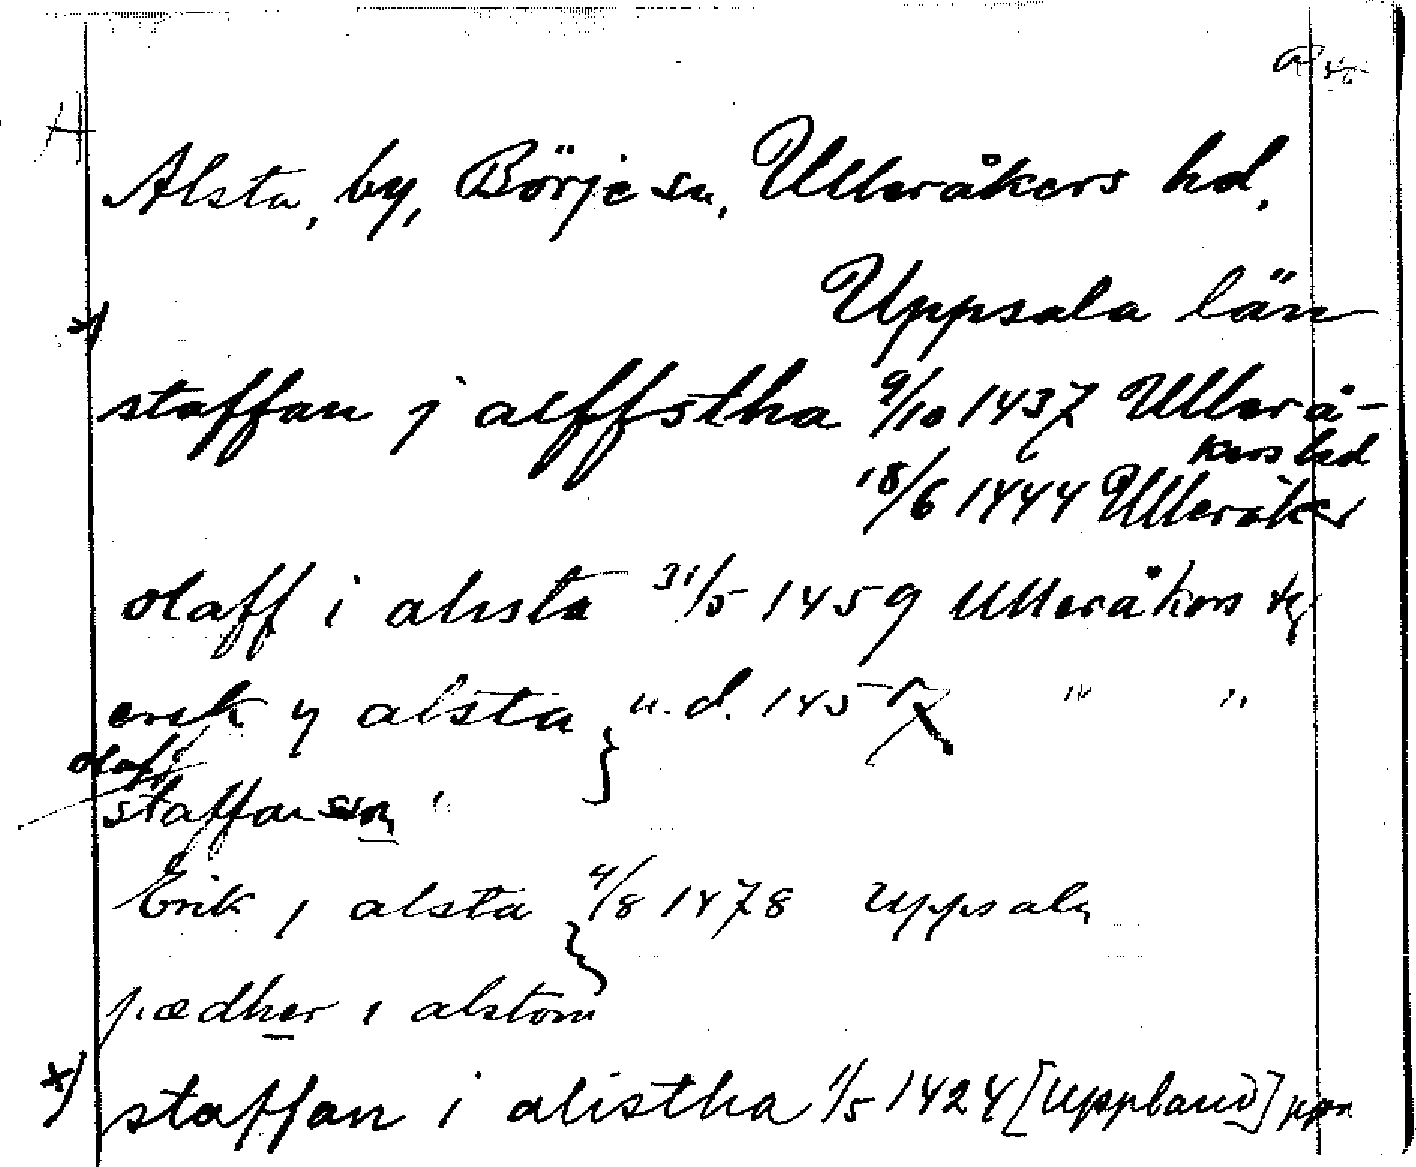 Alsta, by, Börje sn, Ulleråkers hd,
Uppsala län
x)
staffan j alffstha 9/10 1437 Ullerå-
kers hd
18/6 1444 Ulleråker
olaff i alista 31/5 1459 Ulleråkers
erik y alsta } u.d. 1457 " "
olaff
staffansson "
Erik j alsta } 4/8 1478 Uppsala
pædher i alstom
x) staffan i alistha 1/5 1424 [Uppland]